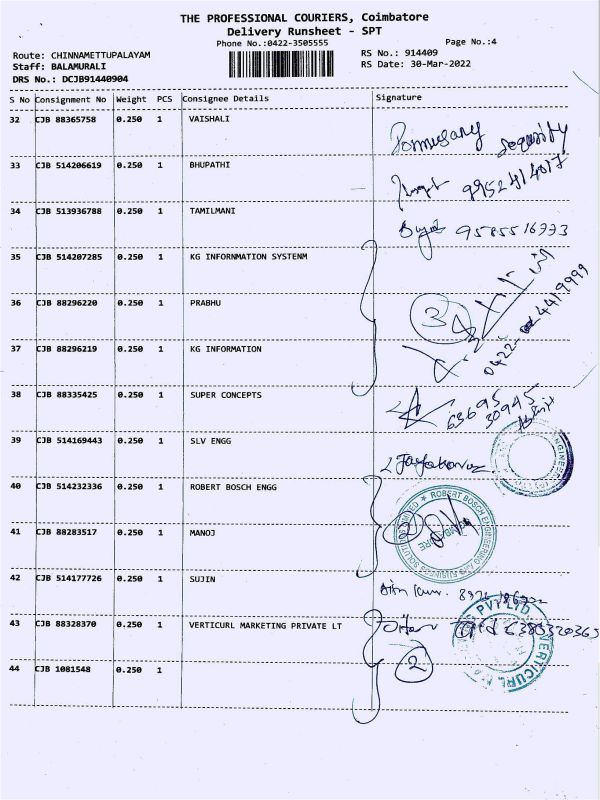 THE PROFESSIONAL COURIERS, Coimbatore
Delivery Runsheet - SPT
Phone No.:0422-3505555
Page No.:4
Route: CHINNAMETTUPALAYAM
RS No.: 914409
Staff: BALAMURALI
RS Date: 30-Mar-2022
DRS No.: DCJB91440904
S No Consignment No Weight PCS Consignee Details Signature
32 CJB 88365758 0.250 1 VAISHALI
33 CJB 514206619 0.250 1 BHUPATHI
9952414017
34 CJB 513936788 0.250 1 TAMILMANI
35 CJB 514207285 0.250 1 KG INFORNMATION SYSTENM
36 CJB 88296220 0.250 1 PRABHU
3
37 CJB 88296219 0.250 1 KG INFORMATION
38 CJB 88335425 0.250 1 SUPER CONCEPTS
63695
30945
39 CJB 514169443 0.250 1 SLV ENGG
40 CJB 514232336 0.250 1 ROBERT BOSCH ENGG
ROBERT BOSCH ENGINEERING AND BUSINESS SOLUTIONS LIMITED
2
41 CJB 88283517 0.250 1 MANOJ
42 CJB 514177726 0.250 1 SUJIN
43 CJB 88328370 0.250 1 VERTICURL MARKETING PRIVATE LT
VERTICURL
PVT LTD
44 CJB 1081548 0.250 1
2